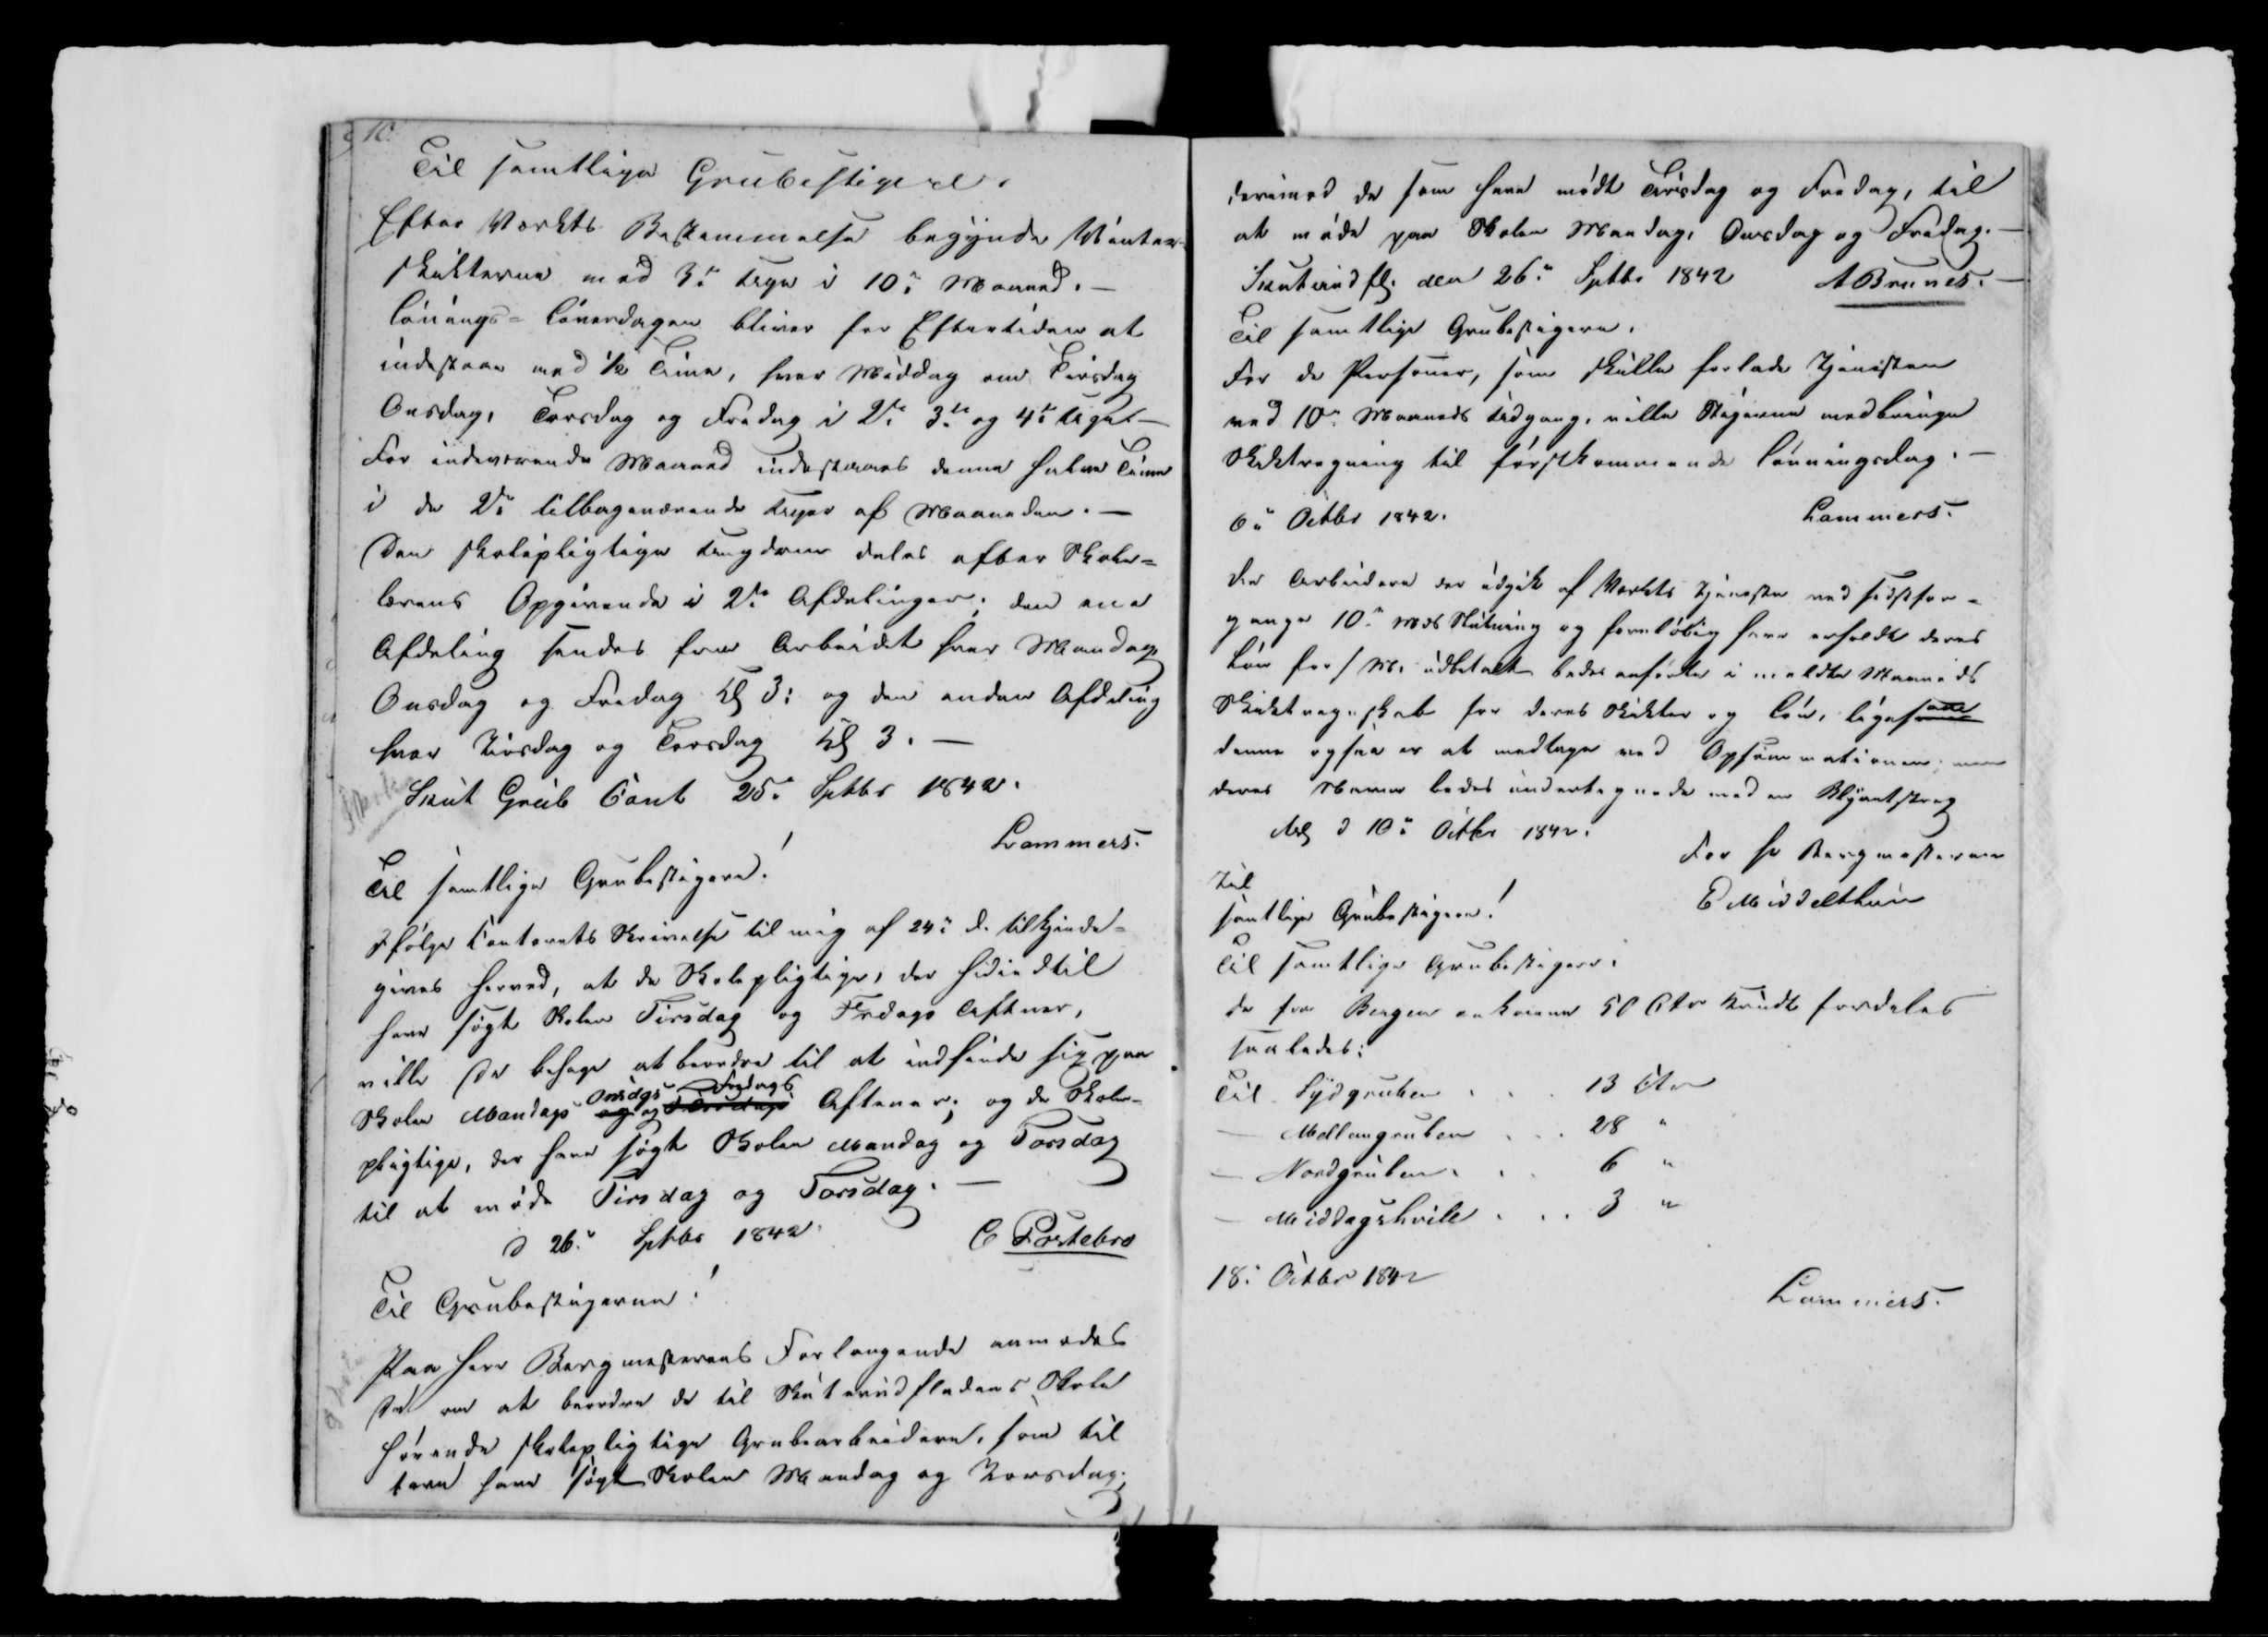 10.
Til samtlige Grubestigere.
Efter Værkets Bestemmelse begynde Vinter-
skikterne med 3die Uge i 10de Maaned. —
Lönings-Löverdagen bliver for Eftertiden at
indestaae med ½ Time, hver Middag om Tirsdag
Onsdag, Torsdag og Fredag i 2de 3die og 4de Uge —
For indeværende Maaned indestaaes denne halve Time
i de 2de tilbageværende Uger af Maaneden. —
Den skolepligtige Ungdom deles efter Skole-
lærens Opgivende i 2de Afdelinger; den ene
Afdeling sendes fra Arbeidet hver Mandag
Onsdag og Fredag Kl 3: og den anden Afdeling
hver Tirsdag og Torsdag Kl 3. —
Skut Grub Cont 25de Sptbr 1842.
Lammers.
Til samtlige Grubestigere!
Ifölge Contorets Skrivelse til mig af 24de d. tilkjende-
gives herved, at de Skolepligtige, der hidindtil
have sögt Skolen Tirsdag og Fredags Aftener,
ville De behage at beordre til at indfinde sig paa
Skolen Mandags Onsdgs og og Torsdags Fredags Aftener; og de Skole-
pligtige, der have sögt Skolen Mandag og Torsdag
til at möde Tirsdag og Torsdag. —
d 26de Sptbr 1842.
C Postebro
Til Grubestigerne!
Paa Herr Bergmesterens Forlangende anmodes
De om at beordre de til Skuterudfladens Skole
hörende skolepligtige Grubearbeidere, som til
forn have sögt Skolen Mandag og Torsdag;
derimod de som have mödt Tirsdag og Fredag, til
at möde paa Skolen Mandag, Onsdag og Fredag. —
Skuterudfl. den 26de Sptbr 1842 A Brunes. —
Til samtlige Grubestigere.
For de Personer, som skulle forlade Tjenesten
ved 10de Maaneds Udgang, ville Stigerne medbringe
Skiktregning til förstkommende Lönningsdag. —
6te Octbr 1842. Lammers.
De Arbeidere der udgik af Værkets Tjeneste ved sidstfor-
gangne 10de Mds Slutning og forelöbig have erholdt deres
Lön for s. M. udbetalt bedes anförte i meldte Maaneds
Skiktregnskab for deres Skikter og Lön, ligesom
denne ogsaa er at medtage ved Opsummationen; men
deres Navne bedes understregnede med en Blyantstreg
d 10de Octbr 1842.
For Hr Bergmesteren
E Middelthun
Til
samtlige Grubestigere!
Til samtlige Grubestigere.
De fra Bergen ankomne 50 Ctr Krudt fordeles
saaledes:
Til Sydgruben . . . 13 Ctr
— Mellemgruben . . . 28 "
— Nordgruben . . . 6 "
— Middagshvile . . . 3 "
18de Octbr 1842
Lammers.